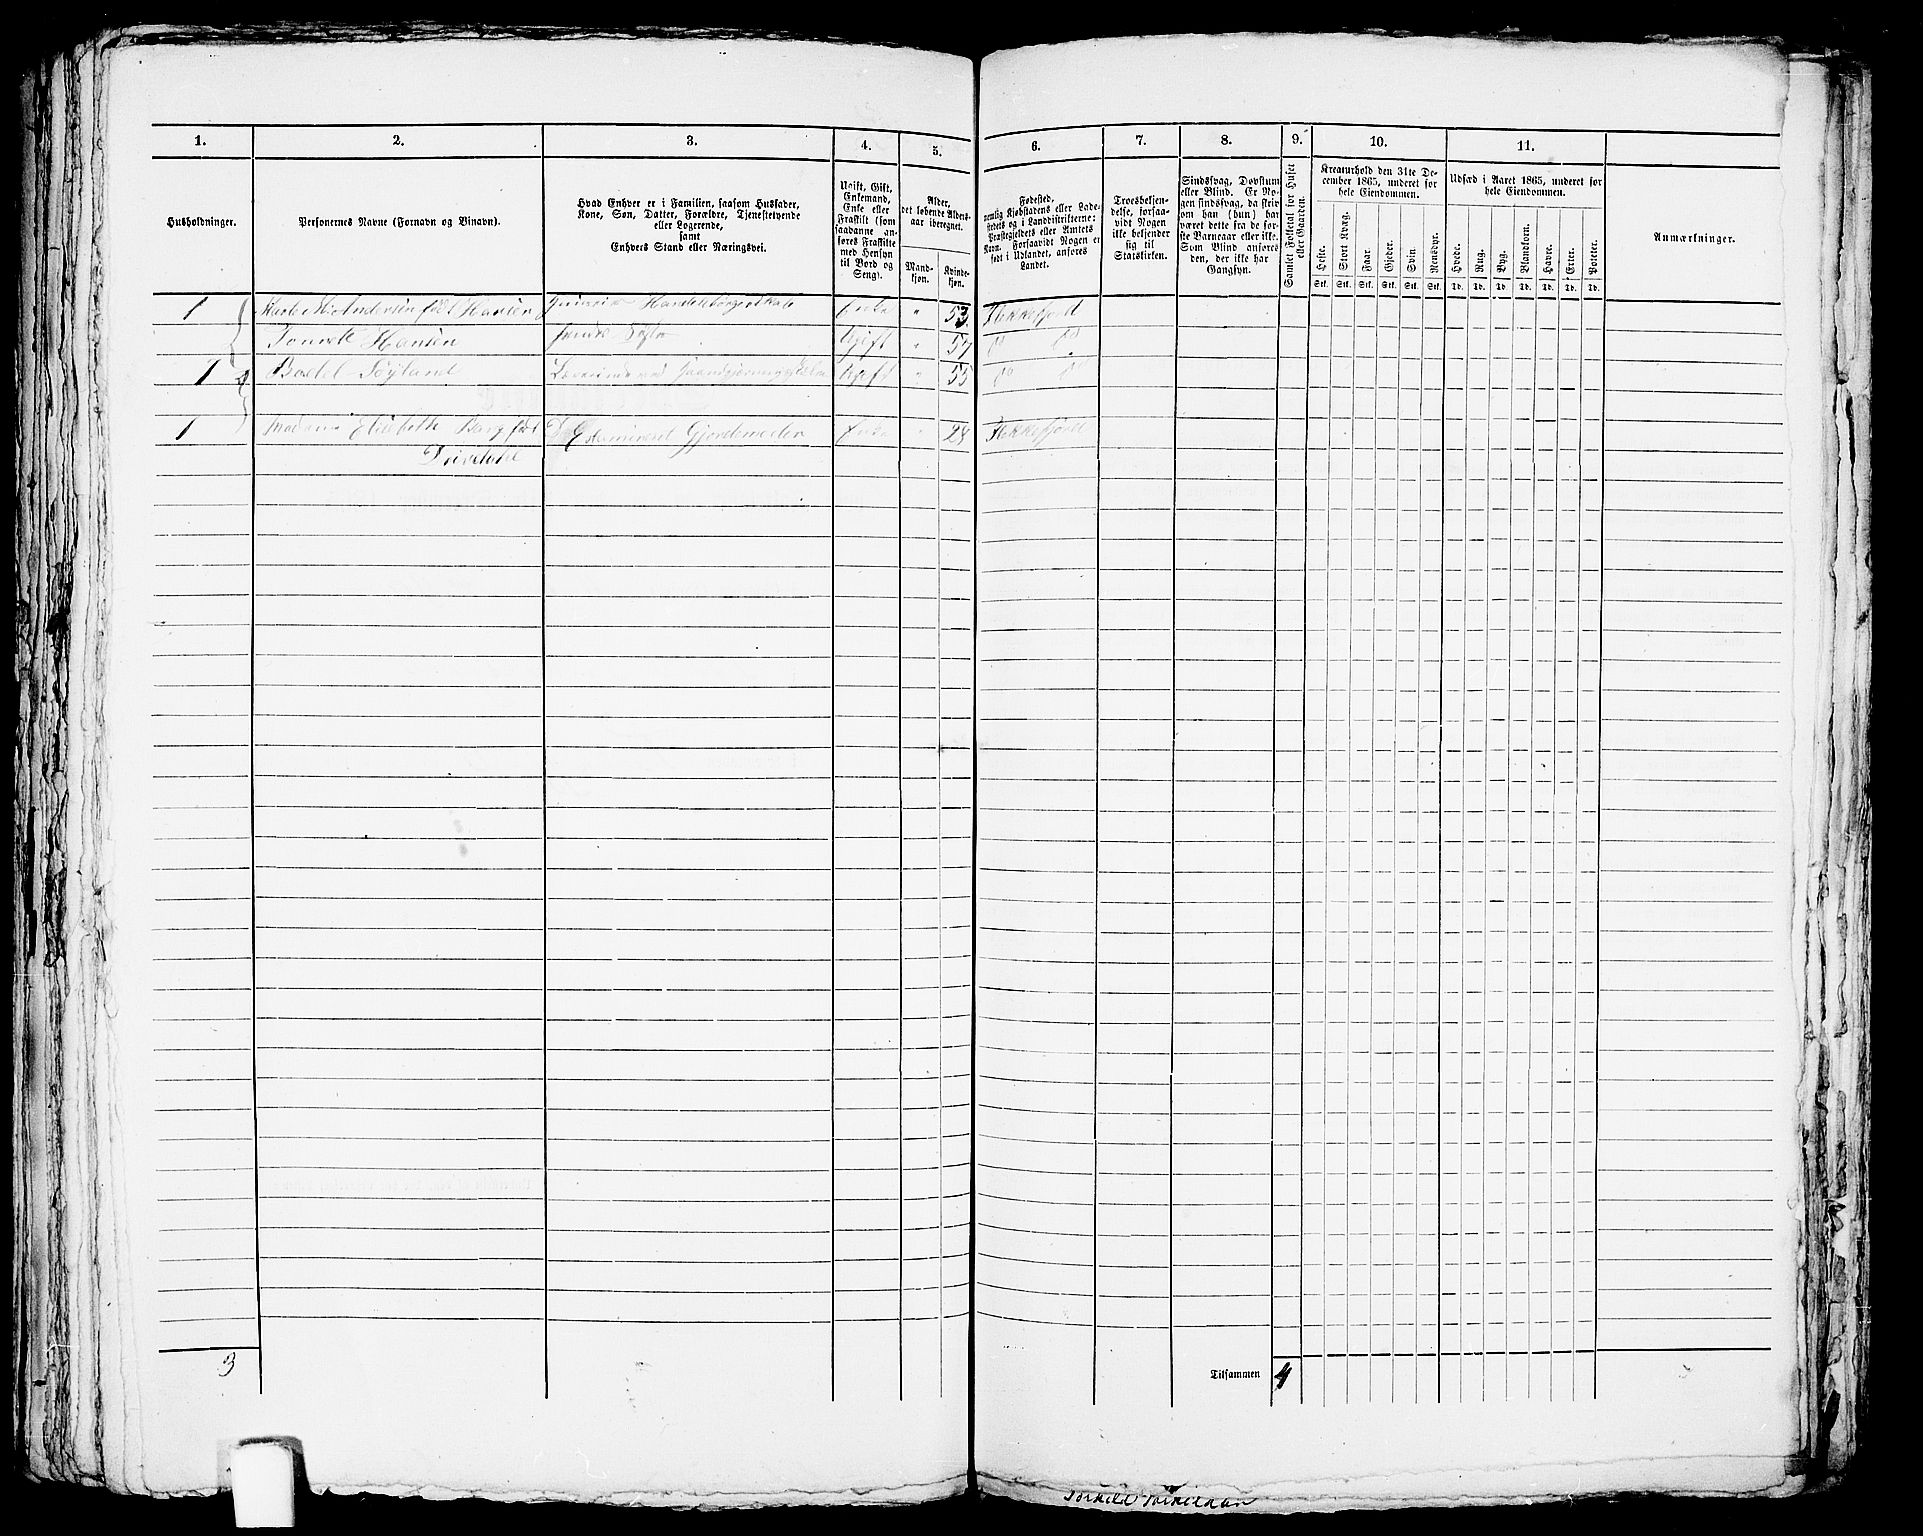 1. 2. 3. 4. 5. 6. 7. 8. 9. 10. 11.
Husholdninger.
Personernes Navne (Fornavn og Binavn).
Hvad Enhver er i Familien, saasom Husfader,
Kone, Søn, Datter, Forældre, Tjenestetyende
eller Logerende,
samt
Enhvers Stand eller Næringsvei.
Ugift, Gift,
Enkemand,
Enke eller
Fraskilt (som
saadanne an-
føres Fraskilte
med Hensyn
til Bord og
Seng).
Alder,
det løbende Alders-
aar iberegnet.
Mand-
kjøn.
Kvinde-
kjøn.
Fødested,
nemlig Kjøbstadens eller Lade-
stedets og i Landdistrikterne:
Præstegjeldets eller Amtets
Navn. Forsaavidt Nogen er
født i Udlandet, anføres
Landet.
Troesbekjen-
delse, forsaa-
vidt Nogen
ikke bekjender
sig til
Statskirken.
Sindssvag, Døvstum
eller Blind. Er No-
gen sindssvag, da skriv
om han (hun) har
været dette fra de før-
ste Barneaar eller ikke.
Som Blind anføres
den, der ikke har
Gangsyn.
Samlet Folketal for Huset
eller Gaarden.
Kreaturhold den 31te De-
cember 1865, underet for
hele Eiendommen.
Heste. Stort Kvæg. Faar. Gjeder. Svin. Rensdyr.
Stk. Stk. Stk. Stk. Stk. Stk.
Udsæd i Aaret 1865, underet for
hele Eiendommen.
Hvede. Rug. Byg. Blandkorn. Havre. Erter. Poteter.
Td. Td. Td. Td. Td. Td. Td.
Anmærkninger.
1 Andersen født Hansen Handelsborgerskab Enke " 53 Flekkefjord
Tonnette Hansen hendes Søster Ugift " 57 do do
1 Bodel Søyland Ugift " 55 do do
1 Madame Elisabette Berg født Examineret Gjordemoder Enke " 28 Flekkefjord
3
Tilsammen 4